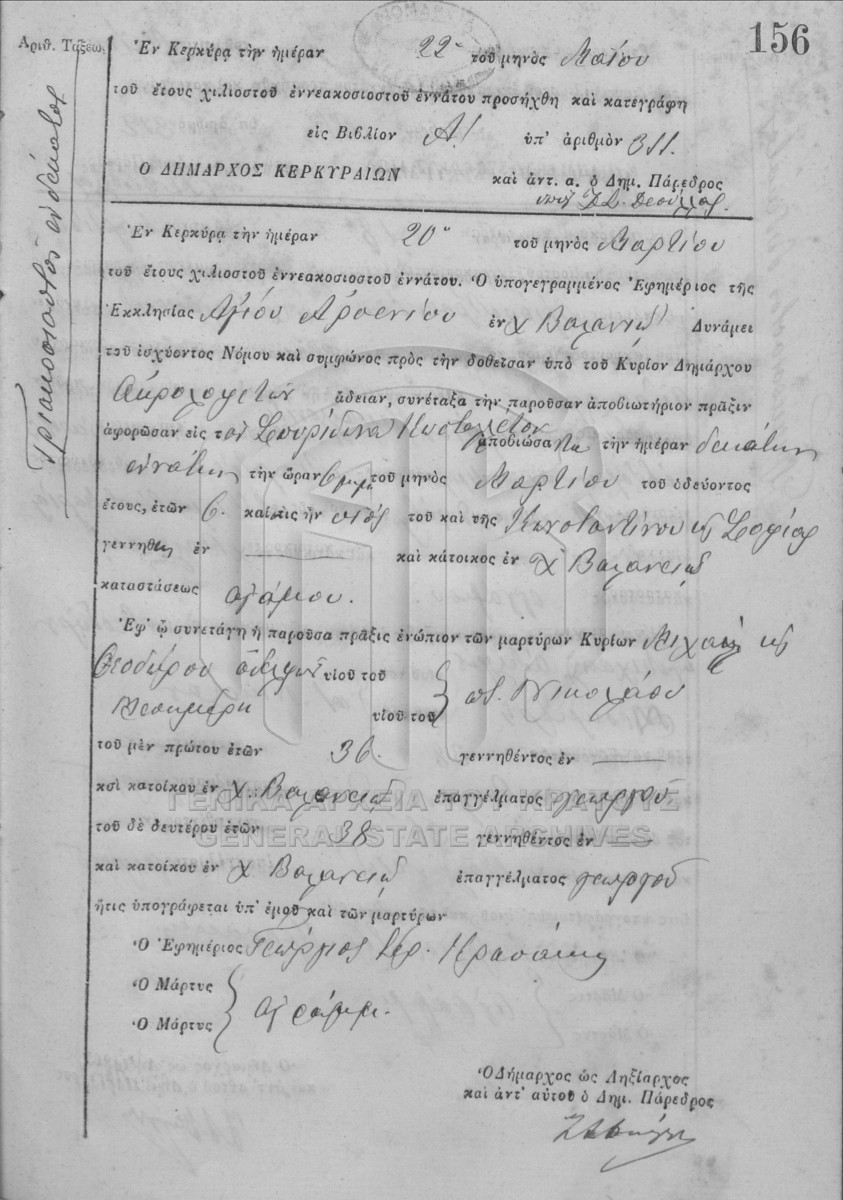 156
Αριθ. Τάξεως
Τριακοσιοστὸς ἑνδέκατος
Ἐν Κερκύρᾳ τὴν ἡμέραν 22 τοῦ μηνὸς Μαΐου
τοῦ ἔτους χιλιοστοῦ ἐννεακοσιοστοῦ ἐννάτου προσήχθη καὶ κατεγράφη
εἰς Βιβλίον Α! ὑπ' ἀριθμὸν 311.
Ο ΔΗΜΑΡΧΟΣ ΚΕΡΚΥΡΑΙΩΝ καὶ ἀντ. α. ὁ Δημ. Πάρεδρος
Ἐν Κερκύρᾳ τὴν ἡμέραν 20 τοῦ μηνὸς Μαρτίου
τοῦ ἔτους χιλιοστοῦ ἐννεακοσιοστοῦ ἐννάτου. Ὁ ὑπογεγραμμένος Ἐφημέριος τῆς
Ἐκκλησίας Ἁγίου Ἀρσενίου ἐν χ Βαλανειὸ Δυνάμει
τοῦ ἰσχύοντος Νόμου καὶ συμφώνος πρὸς τὴν δοθεῖσαν ὑπὸ τοῦ Κυρίου Δημάρχου
ἄδειαν, συνέταξα τὴν παροῦσαν ἀποβιωτήριον πρᾶξιν
ἀφορῶσαν εἰς τὸν Σπυρίδωνα ἀποβιώσαντα τὴν ἡμέραν δεκάτην
ἐννάτην τὴν ὥραν 6 μ.μ. τοῦ μηνὸς Μαρτίου τοῦ ὁδεύοντος
ἔτους, ἐτῶν 6. καὶ τις ἦν υἱὸς τοῦ καὶ τῆς Κωνσταντίνου κ Σοφίας
γεννηθεὶς ἐν — καὶ κάτοικος ἐν χ Βαλανειὸ
καταστάσεως ἀγάμου.
Ἐφ' ᾧ συνετάγη ἡ παροῦσα πρᾶξις ἐνώπιον τῶν μαρτύρων Κυρίων Μιχαὴλ κ
Θεοδώρου ἀδελφῶν υἱοῦ τοῦ
υἱοῦ τοῦ ποτ. Νικολάου
τοῦ μὲν πρώτου ἐτῶν 36. γεννηθέντος ἐν —
καὶ κατοίκου ἐν χ. Βαλανειὸ ἐπαγγέλματος γεωργοῦ
τοῦ δὲ δευτέρου ἐτῶν 38 γεννηθέντος ἐν —
καὶ κατοίκου ἐν χ Βαλανειὸ ἐπαγγέλματος γεωργοῦ
ἥτις ὑπογράφεται ὑπ' ἐμοῦ καὶ τῶν μαρτύρων
Ὁ Ἐφημέριος Γεώργιος Ἱερ.
Ὁ Μάρτυς
Ὁ Μάρτυς ἀγράμμ.
Ὁ Δήμαρχος ὡς Ληξίαρχος
καὶ ἀντ' αὐτοῦ ὁ Δημ. Πάρεδρος
ΓΕΝΙΚΑ ΑΡΧΕΙΑ ΤΟΥ ΚΡΑΤΟΥΣ
GENERAL STATE ARCHIVES